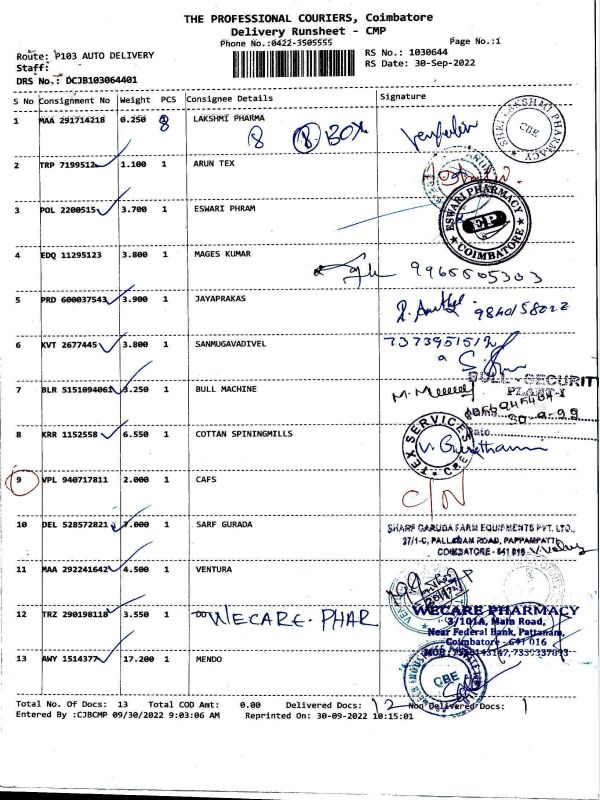 THE PROFESSIONAL COURIERS, Coimbatore
Delivery Runsheet - CMP
Phone No.:0422-3505555 Page No.:1
Route: P103 AUTO DELIVERY RS No.: 1030644
Staff: RS Date: 30-Sep-2022
DRS No.: DCJB103064401
S No Consignment No Weight PCS Consignee Details Signature
1 MAA 291714218 0.250 8 LAKSHMI PHARMA
8 8 BOX
SHRI LAKSHMI PHARMACY CBE
2 TRP 7199512 1.100 1 ARUN TEX
3 POL 2200515 3.700 1 ESWARI PHRAM
ESWARI PHARMACY EP COIMBATORE
4 EDQ 11295123 3.800 1 MAGES KUMAR
9965505303
5 PRD 600037543 3.900 1 JAYAPRAKAS
9840158022
6 KVT 2677445 3.800 1 SANMUGAVADIVEL
7 BLR 5151094061 3.250 1 BULL MACHINE
BULL - SECURIT
PLANT-I
8 KRR 1152558 6.550 1 COTTAN SPININGMILLS
TEX SERVICES CBE
9 VPL 940717811 2.000 1 CAFS
C/N
10 DEL 528572821 7.000 1 SARF GURADA
SHARP GARUDA FARM EQUIPMENTS PVT. LTD.,
37/1-C, PALLADAM ROAD, PAPPAMPATTI
COIMBATORE - 641 016
11 MAA 292241642 4.500 1 VENTURA
12 TRZ 290198118 3.550 1 WECARE. PHAR
WECARE PHARMACY
3/101A, Main Road,
Near Federal Bank, Pattanam,
Coimbatore - 641 016
13 AWY 1514377 17.200 1 MENDO
CBE
Total No. Of Docs: 13 Total COD Amt: 0.00 Delivered Docs: 12 Non Delivered Docs: 1
Entered By :CJBCMP 09/30/2022 9:03:06 AM Reprinted On: 30-09-2022 10:15:01